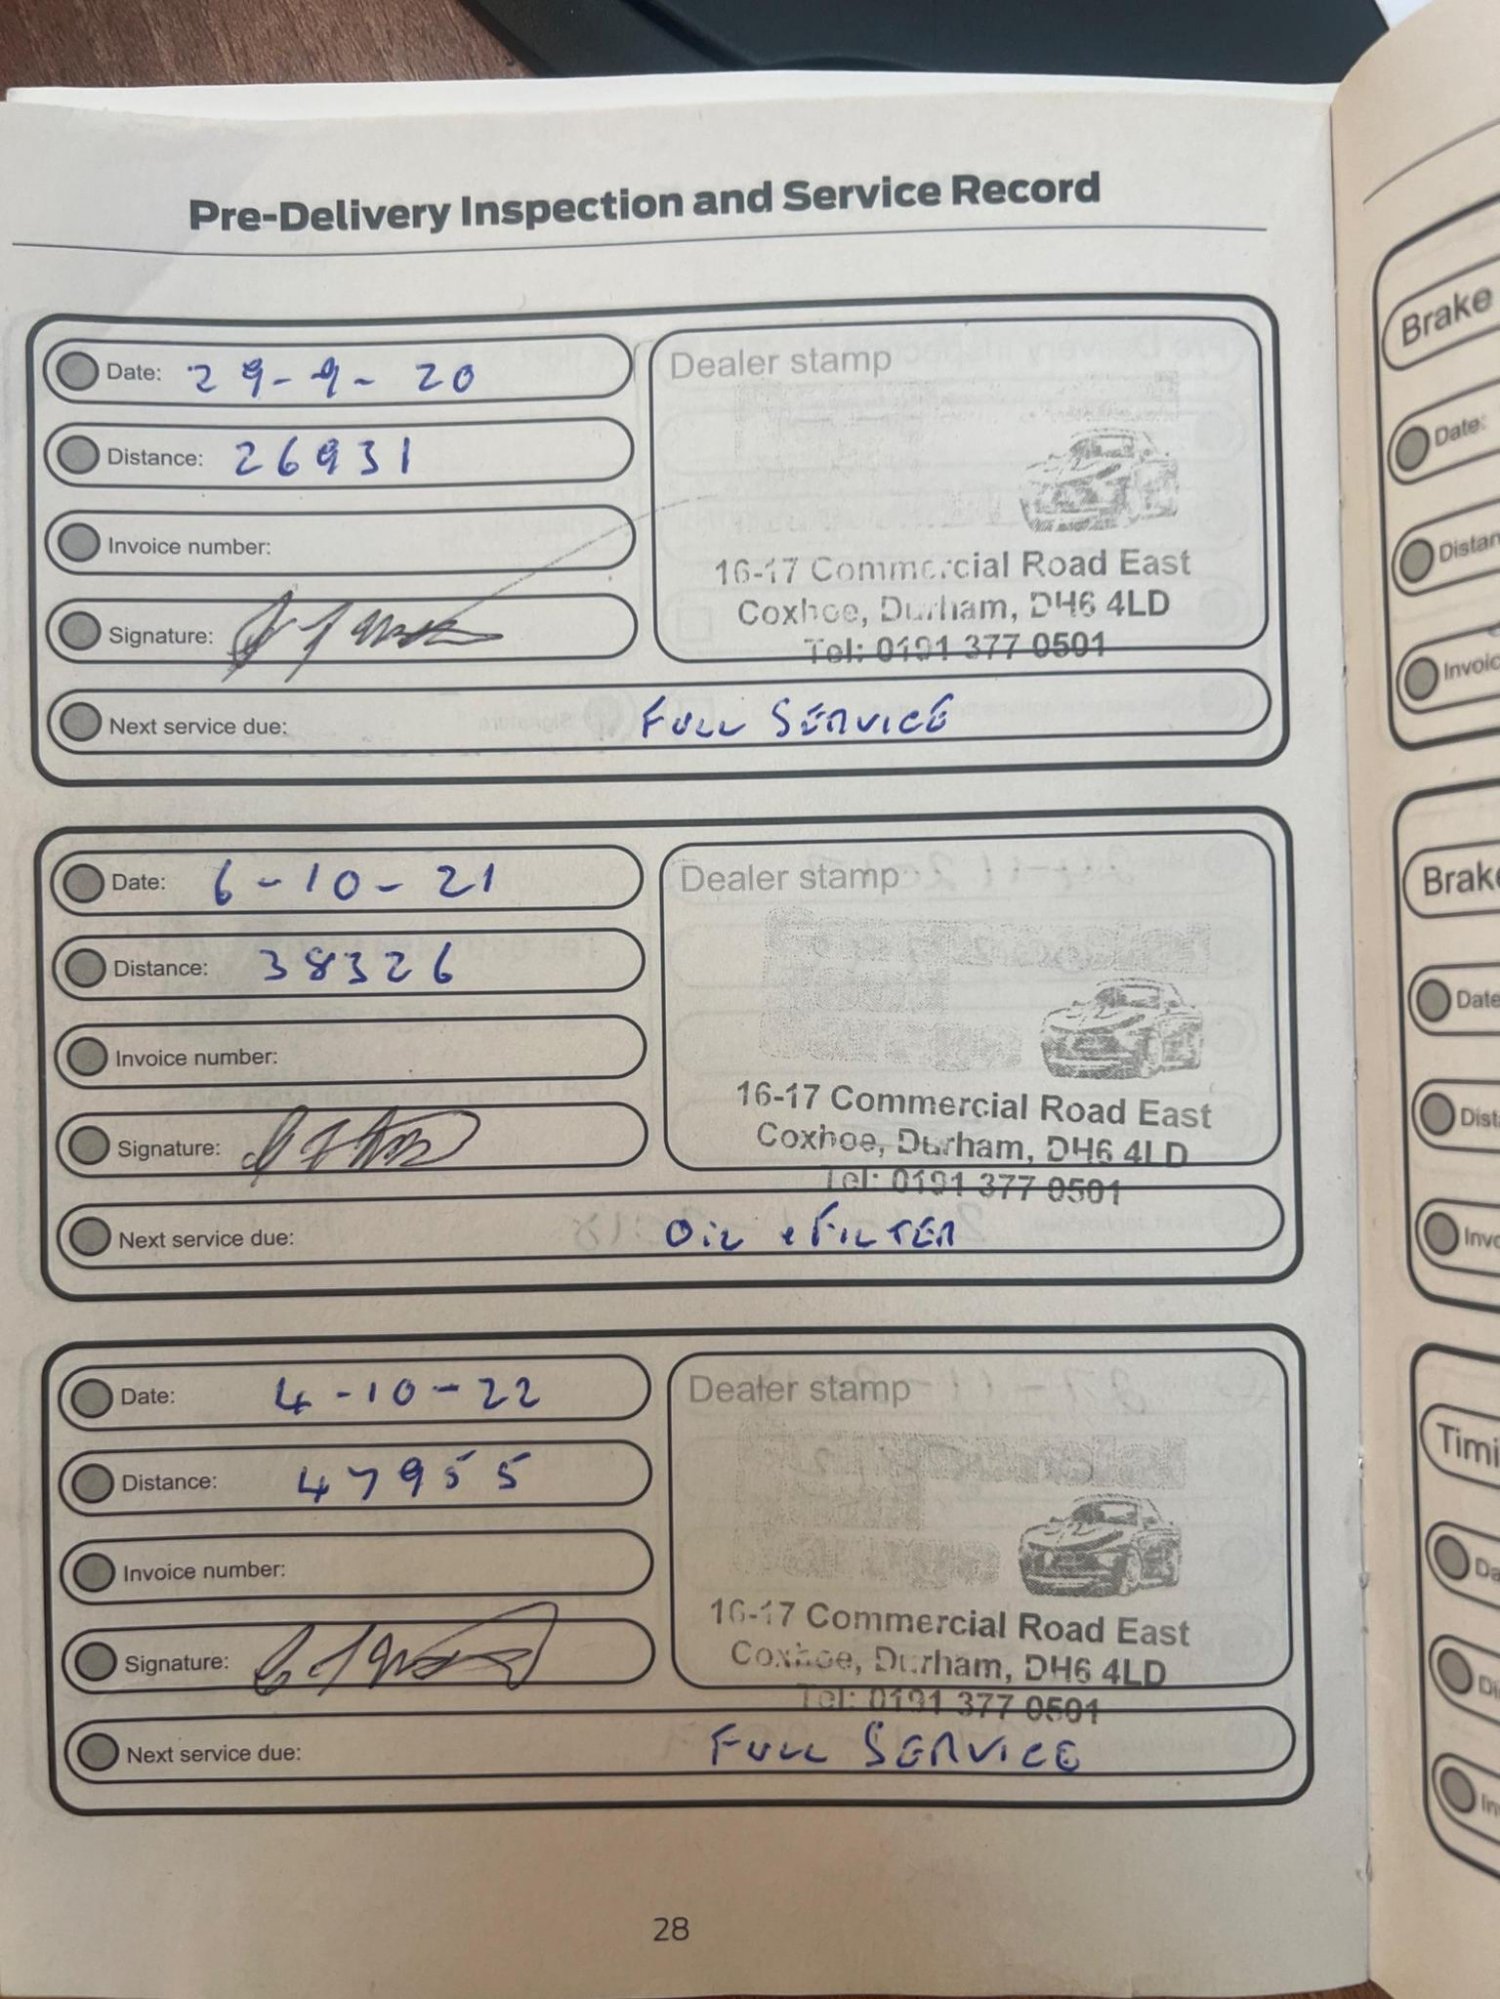 Pre-Delivery Inspection and Service Record
Date: 29-9-20
Distance: 26931
Invoice number:
Signature:
Dealer stamp
16-17 Commercial Road East
Coxhoe, Durham, DH6 4LD
Tel: 0191 377 0501
Next service due: FULL SERVICE
Date: 6-10-21
Distance: 38326
Invoice number:
Signature:
Dealer stamp
16-17 Commercial Road East
Coxhoe, Durham, DH6 4LD
Tel: 0191 377 0501
Next service due: OIL & FILTER
Date: 4-10-22
Distance: 47955
Invoice number:
Signature:
Dealer stamp
16-17 Commercial Road East
Coxhoe, Durham, DH6 4LD
Tel: 0191 377 0501
Next service due: FULL SERVICE
28
Brake
Date:
Distan
Invoic
Brake
Date
Dista
Invo
Timi
Da
Di
In